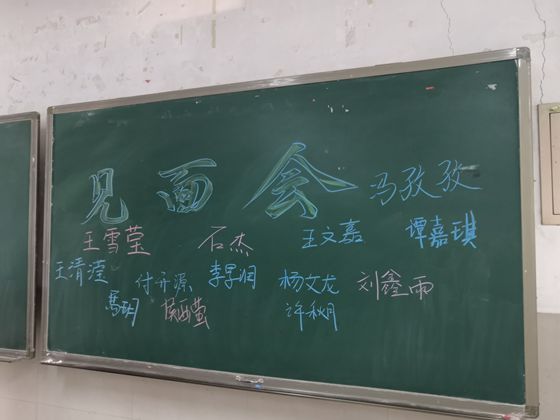 见面会 马孜孜
王雪莹 石杰 王文嘉 谭嘉琪
王清滢 付开源 李早润 杨文龙 刘鑫雨
馬玥 许秋月